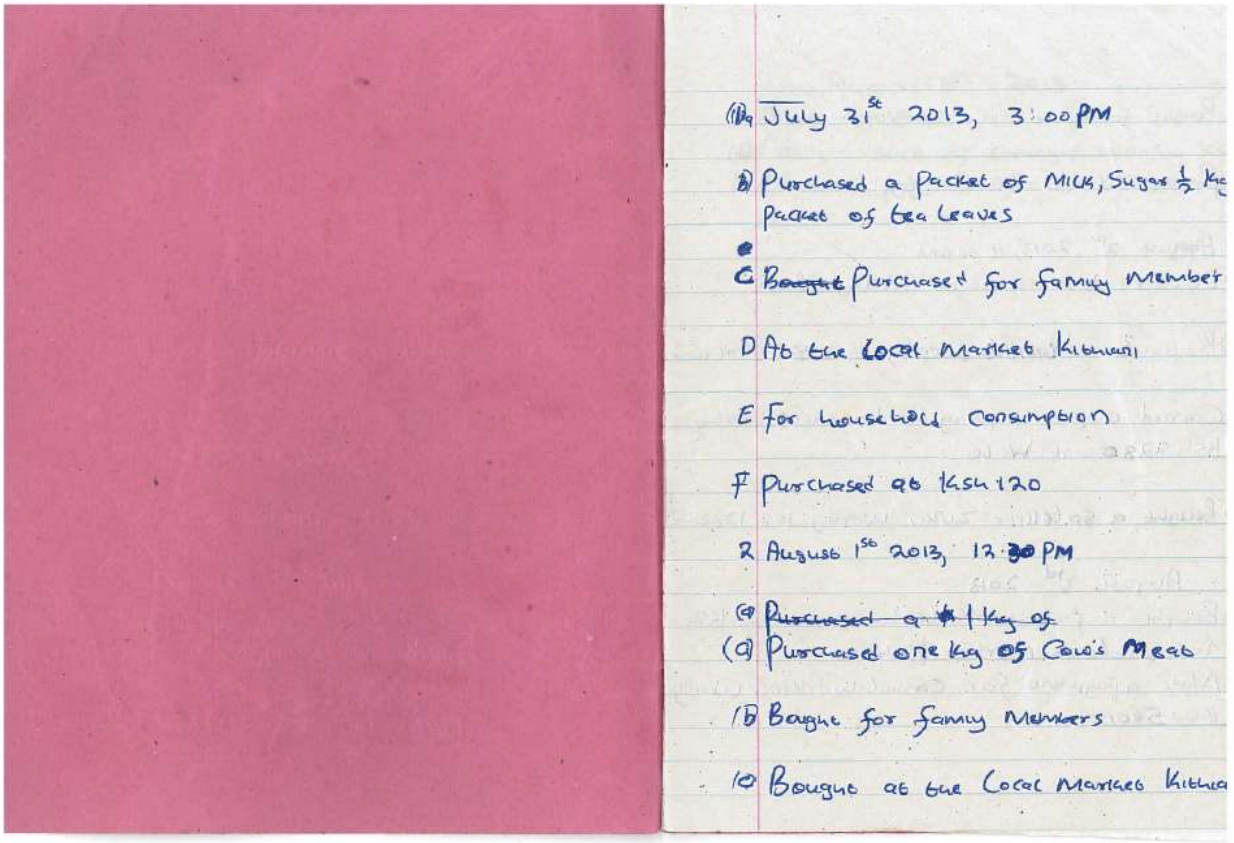 (1)a July 31st 2013, 3:00PM
b) Purchased a packet of Milk, Sugar ½ Kg
packet of tea leaves
C Bought Purchased for family member
D At the Local market Kithiani
E for household Consumption
F purchased at Ksh 120
2 August 1st 2013, 12.30 PM
(a) Purchased a 1 kg of
(a) Purchased one kg of Cow's Meat
(b) Bought for family Members
(c) Bought at the Local Market Kithia